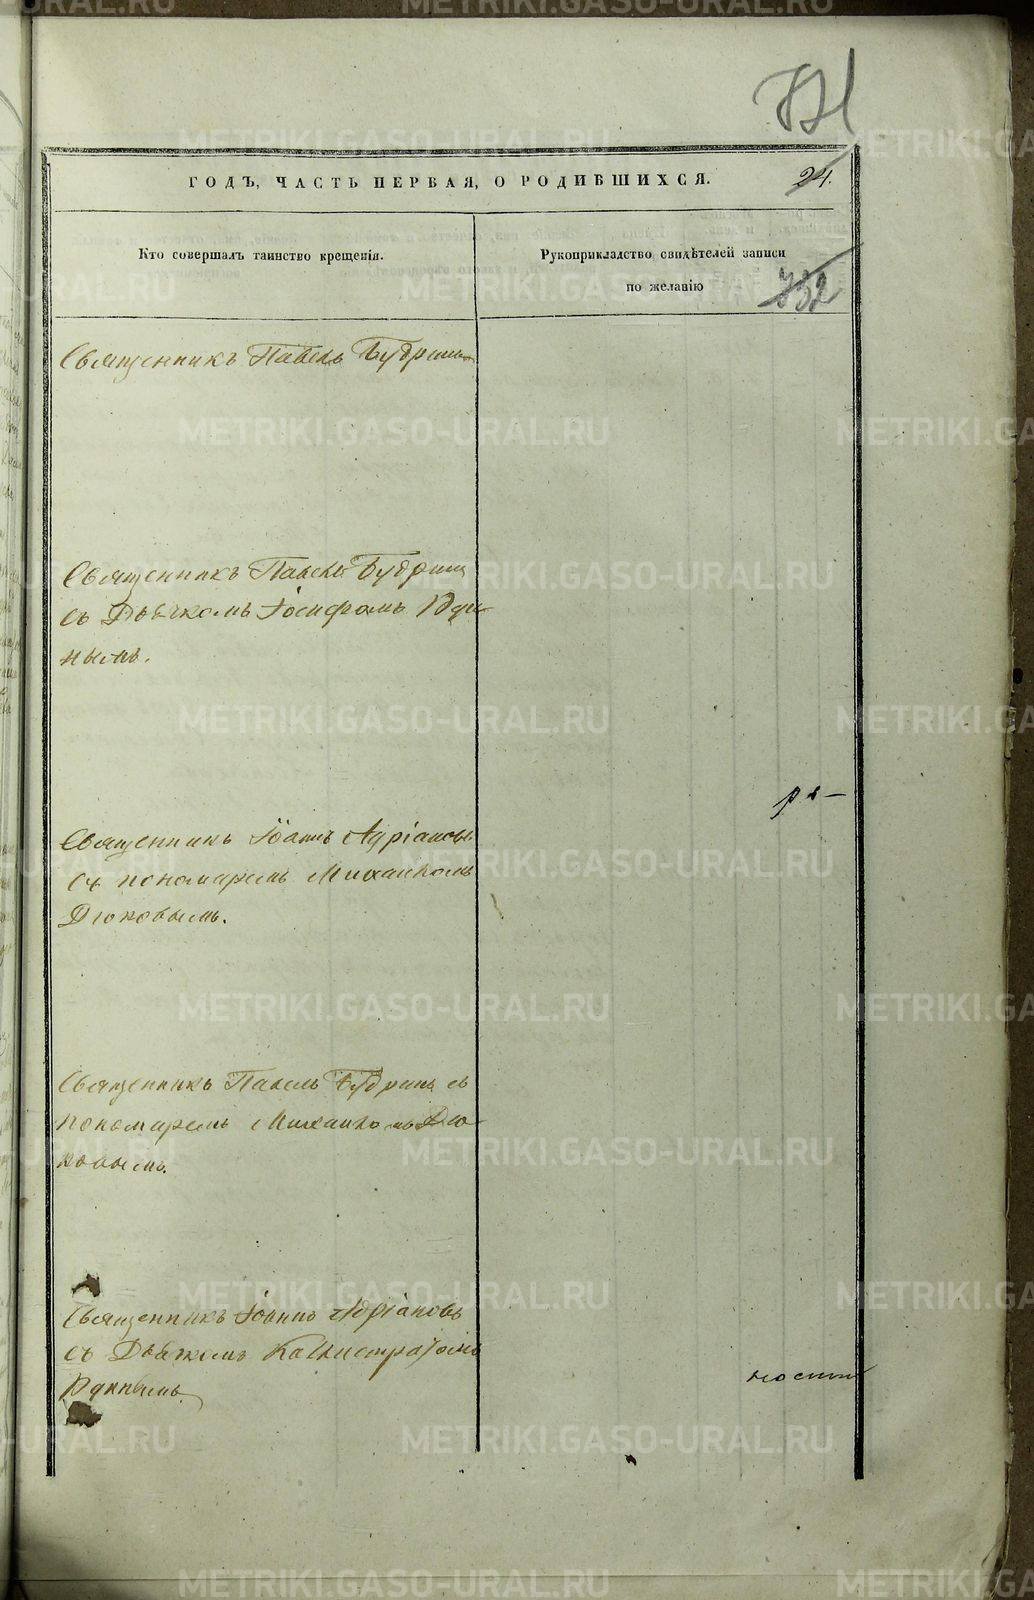 731
ГОДЪ, ЧАСТЬ ПЕРВАЯ, О РОДИВШИХСЯ.
24.
Кто совершалъ таинство крещенія.
Рукоприкладство свидѣтелей записи
по желанію
732
Священникъ Павелъ Будринъ
Священникъ Павелъ Будринъ
съ Дьячкомъ Іосифомъ Юди-
нымъ.
Священникъ Іоаннъ Адріановъ
съ пономаремъ Михаиломъ
Дюковымъ.
Священникъ Павелъ Будринъ съ
пономаремъ Михаиломъ Дю-
ковымъ.
Священникъ Іоаннъ Адріановъ
съ Дьячкомъ Каллистратомъ
Юдинымъ
METRIKI.GASO-URAL.RU